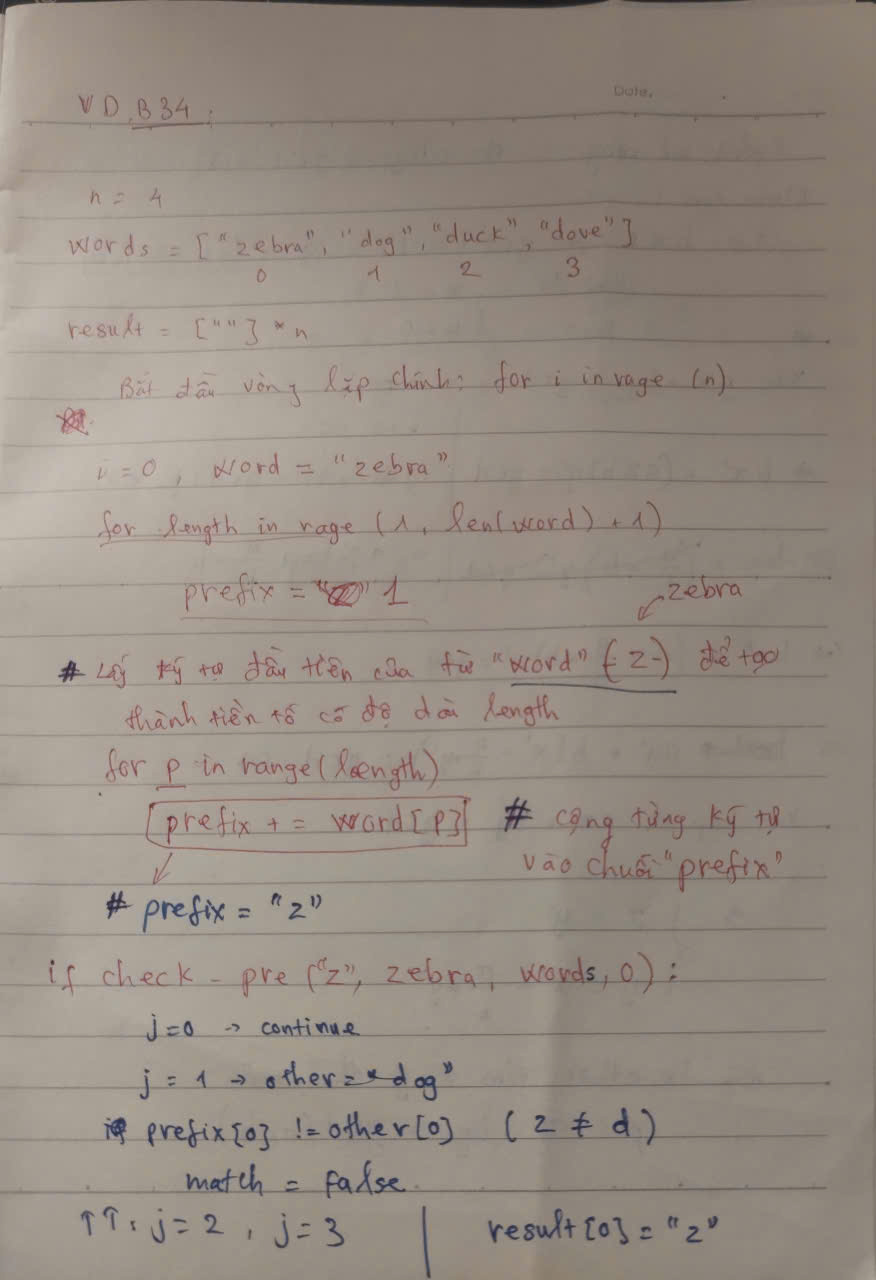 Date.
VD B34:
n = 4
words = ["zebra", "dog", "duck", "dove"]
0 1 2 3
result = [""] * n
Bắt đầu vòng lặp chính: for i in rage (n)
i = 0, word = "zebra"
for length in rage (1, len(word) + 1)
prefix = " " 1
zebra
# Lấy ký tự đầu tiên của từ "word" (-z-) để tạo
thành tiền tố có độ dài length
for p in range(length)
prefix += word[p] # cộng từng ký tự
vào chuỗi "prefix"
# prefix = "z"
if check-pre ("z", zebra, words, 0):
j=0 → continue
j = 1 → other= "dog"
if prefix[0] != other[0] (z ≠ d)
match = false
TT: j=2, j=3 | result[0] = "z"